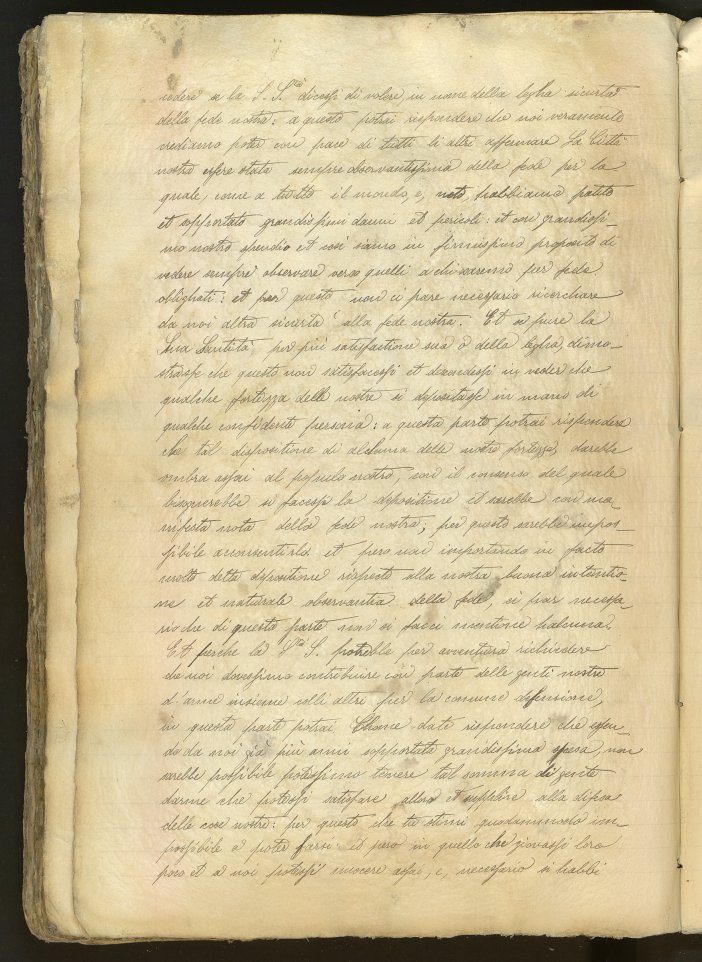 vedere a la S. S.tà dicessi di volere, in nome della legha sicurtà
della fede nostra: a questo potrai rispondere che noi veramente
crediamo poter con pace di tutti li altri affermare la Città
nostra essere stata sempre observantissima della fede per la
quale, come a tutto il mondo, e, noto, habbiamo patito
et sopportato grandissimi danni et pericoli: et con grandissi-
mo nostro spendio et così siamo in firmissimo proposito di
vedere sempre observare verso quelli a chi saremo per fede
oblighati: et per questo non ci pare necessario ricerchare
da noi altra sicurtà alla fede nostra. Et se pure la
Sua Santità per più satisfactione sua o della legha, dimo-
strasse che questo non satisfacessi et discendessi in veder che
qualche fortezza delle nostre si dipositasse in mano di
qualche confidente persona: a questa parte potrai rispondere
che tal dispositione di alchuna delle nostre fortezze, darebbe
ombra assai al populo nostro, con il consenso del quale
bisognerebbe si facessi la dipositione et sarebbe con ma-
nifesta nota della fede nostra; per questo sarebbe impos-
sibile acconsentirla et pero non importando in facto
molto detta dipositione rispecto alla nostra buona intentio-
ne et naturale observantia della fede, ci par necessa-
rio che di questa parte non si facci mentione halcuna.
Et perche la S.tà S. potrebbe per avventura richiedere
che noi dovessimo contribuire con parte delle genti nostre
d'arme insieme colli altri per la comune difensione,
in questa parte potrai rispondere che essen-
do da noi già più anni sopportata grandissima spesa, non
sarebbe possibile potessimo tenere tal somma di gente
darme che potessi satisfare alloro et supplire alla difesa
delle cose nostre: per questo che tu stimi quodammodo im-
possibile e poter farsi: et pero in quello che giovassi loro
poco et a noi potessi nuocere assai, e, necessario si habbi